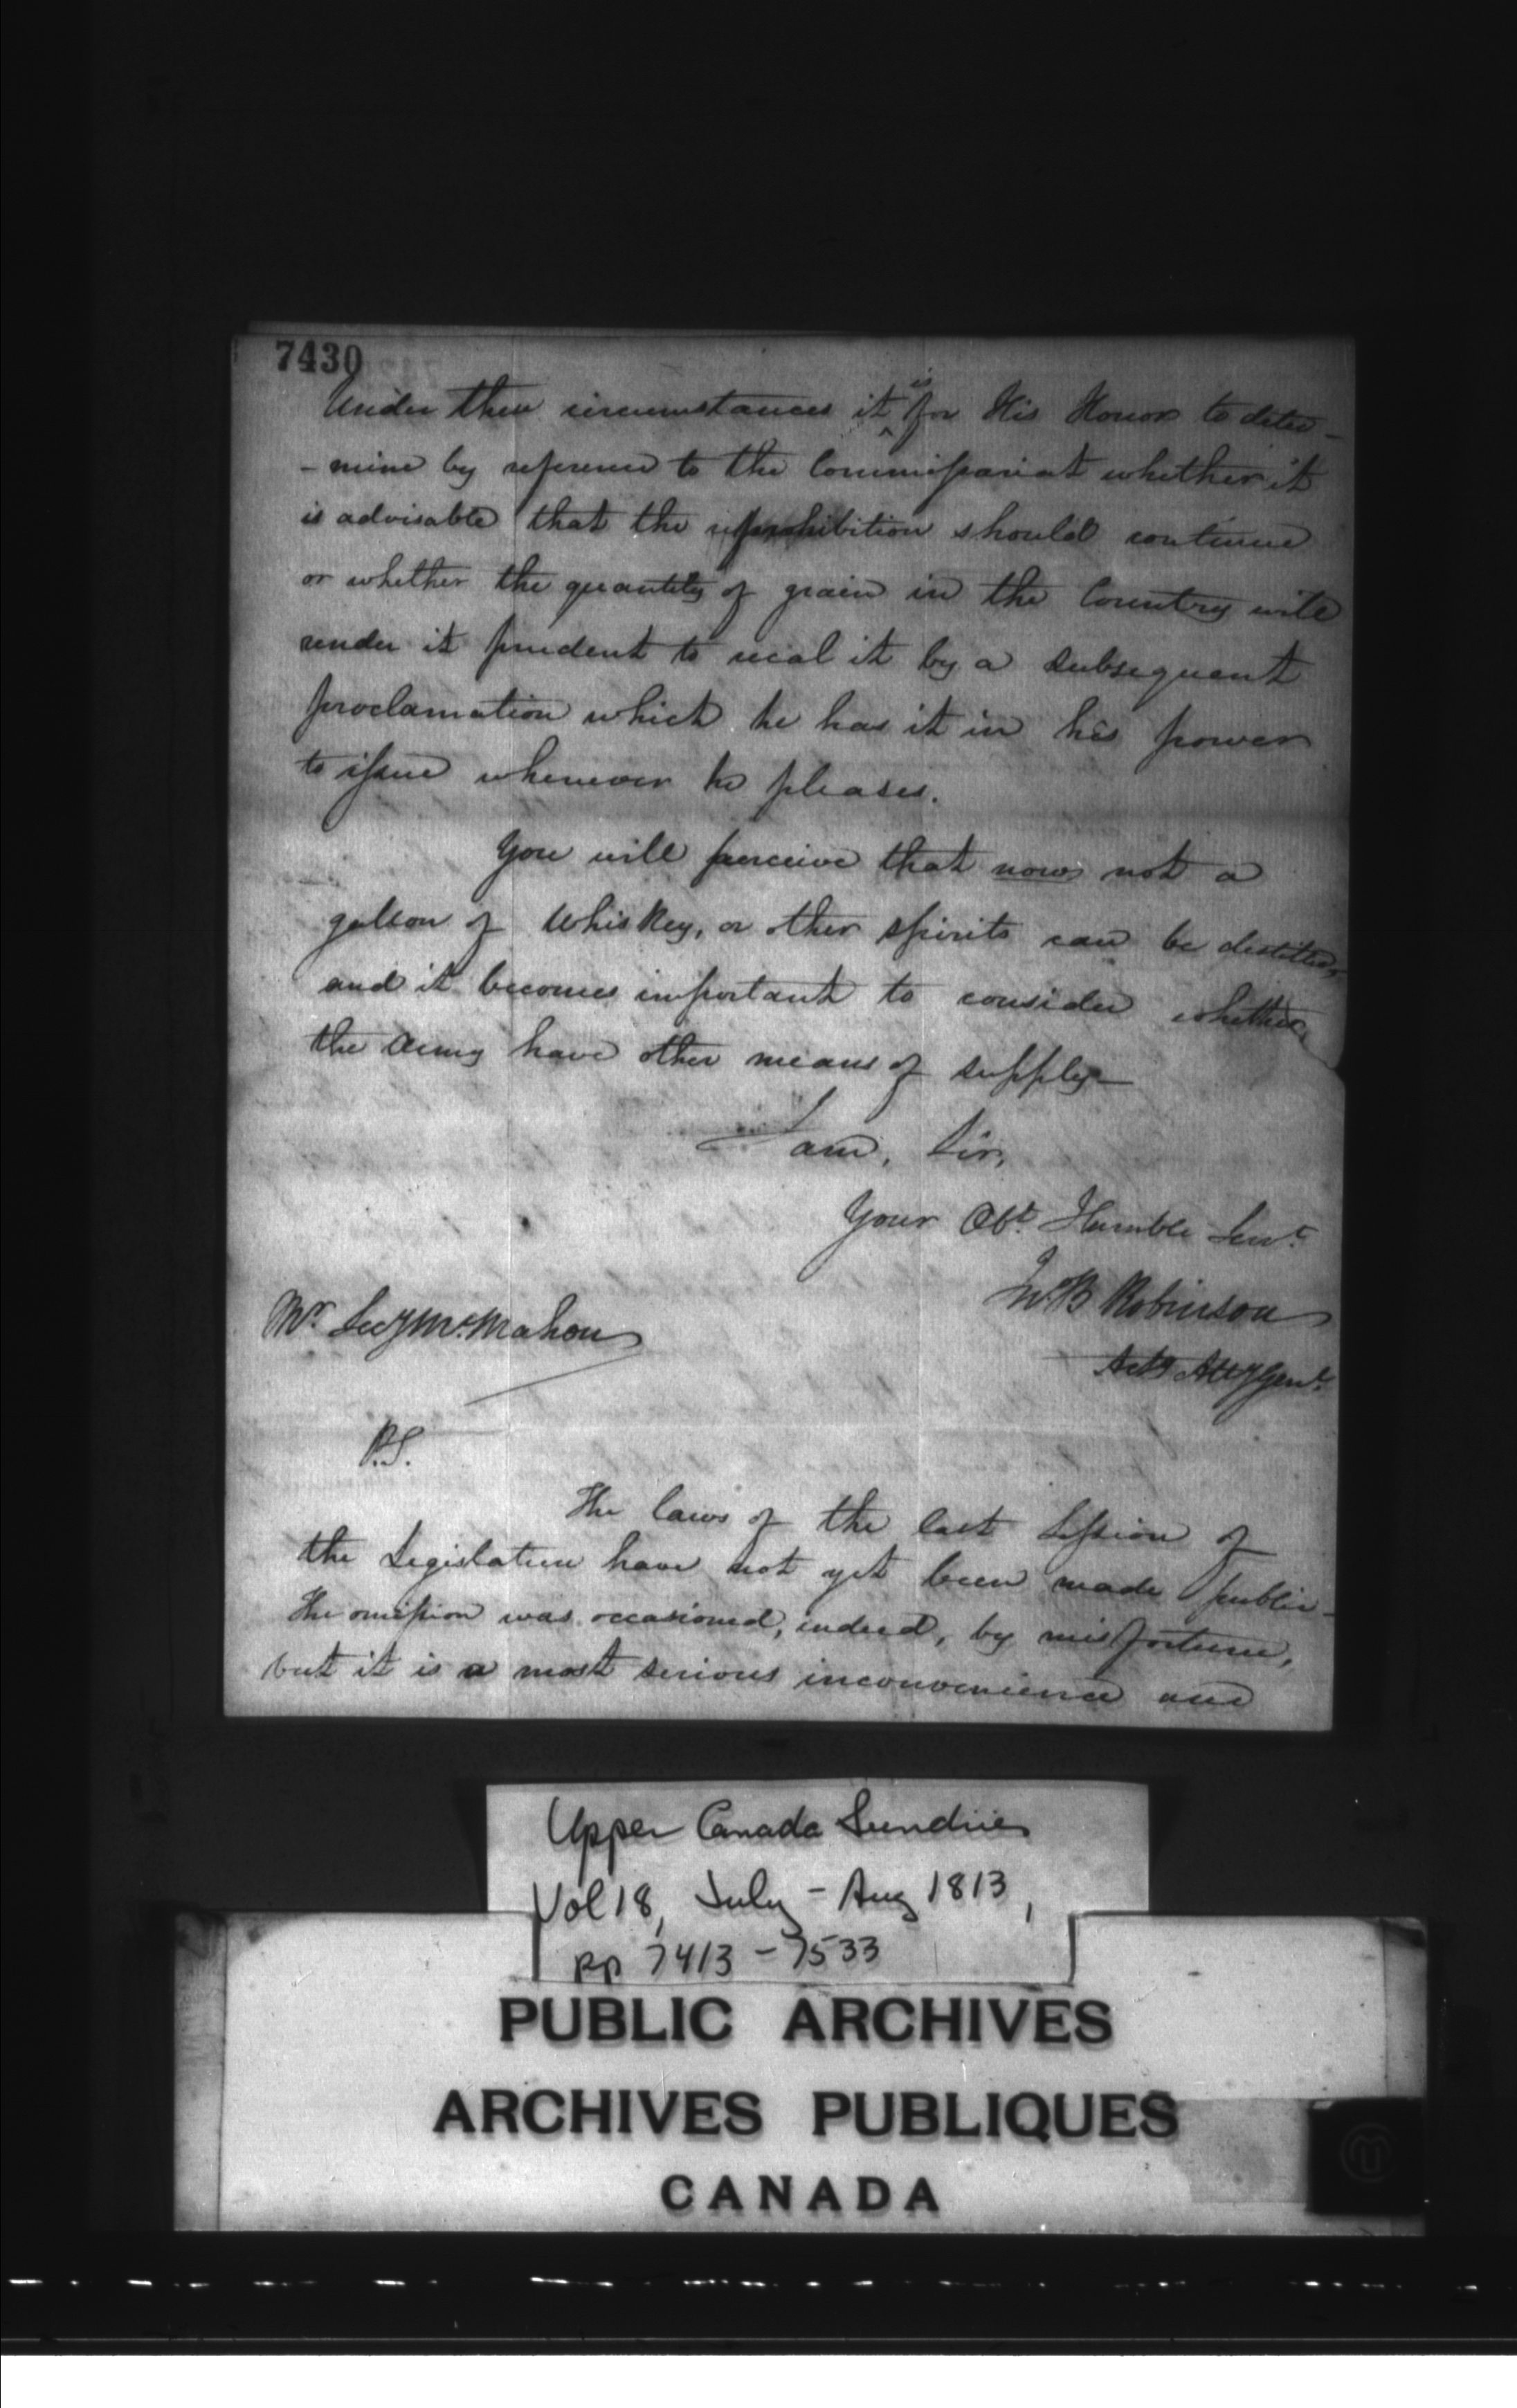 7430
Under these circumstances it is for His Honor to deter-
-mine by reference to the Commissariat whether it
is advisable that the prohibition should continue
or whether the quantity of grain in the Country will
render it prudent to recal it by a subsequent
proclamation which he has it in his power
to issue whenever he pleases.
You will perceive that now not a
gallon of Whiskey, or other spirits can be distilled,
and it becomes important to consider whether
the Army have other means of supply—
I am, Sir,
Your Obt. Humble Servt.
Jno. B Robinson
Actg Atty Genl.
Mr. Secy McMahon
P.S.
The laws of the last Session of
the Legislature have not yet been made public—
The omission was occasioned, indeed, by misfortune,
but it is a most serious inconvenience and
Upper Canada Sundries
Vol 18, July - Aug 1813,
pp 7413 - 7533
PUBLIC ARCHIVES
ARCHIVES PUBLIQUES
CANADA